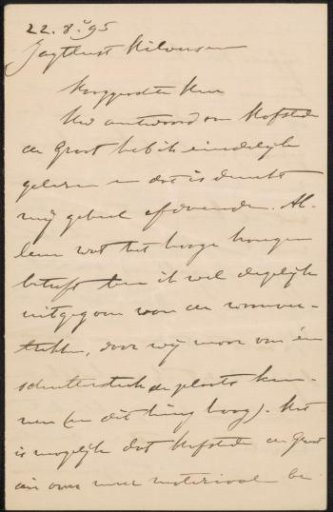 22.8.'95
Jagtlust Hilversum
Hooggeachte Heer
Uw antwoord aan Hofstede
de Groot heb ik eindelijk
gelezen en dat is dunkt
mij geheel afdoende. Al-
leen wat het hooge hangen
betreft ben ik wel degelijk
uitgegaan van de
, daar wij maar van één
schutterstuk de plaats ken-
nen (en dit hing hoog). Het
is mogelijk dat Hofstede de Groot
over meer materiaal be